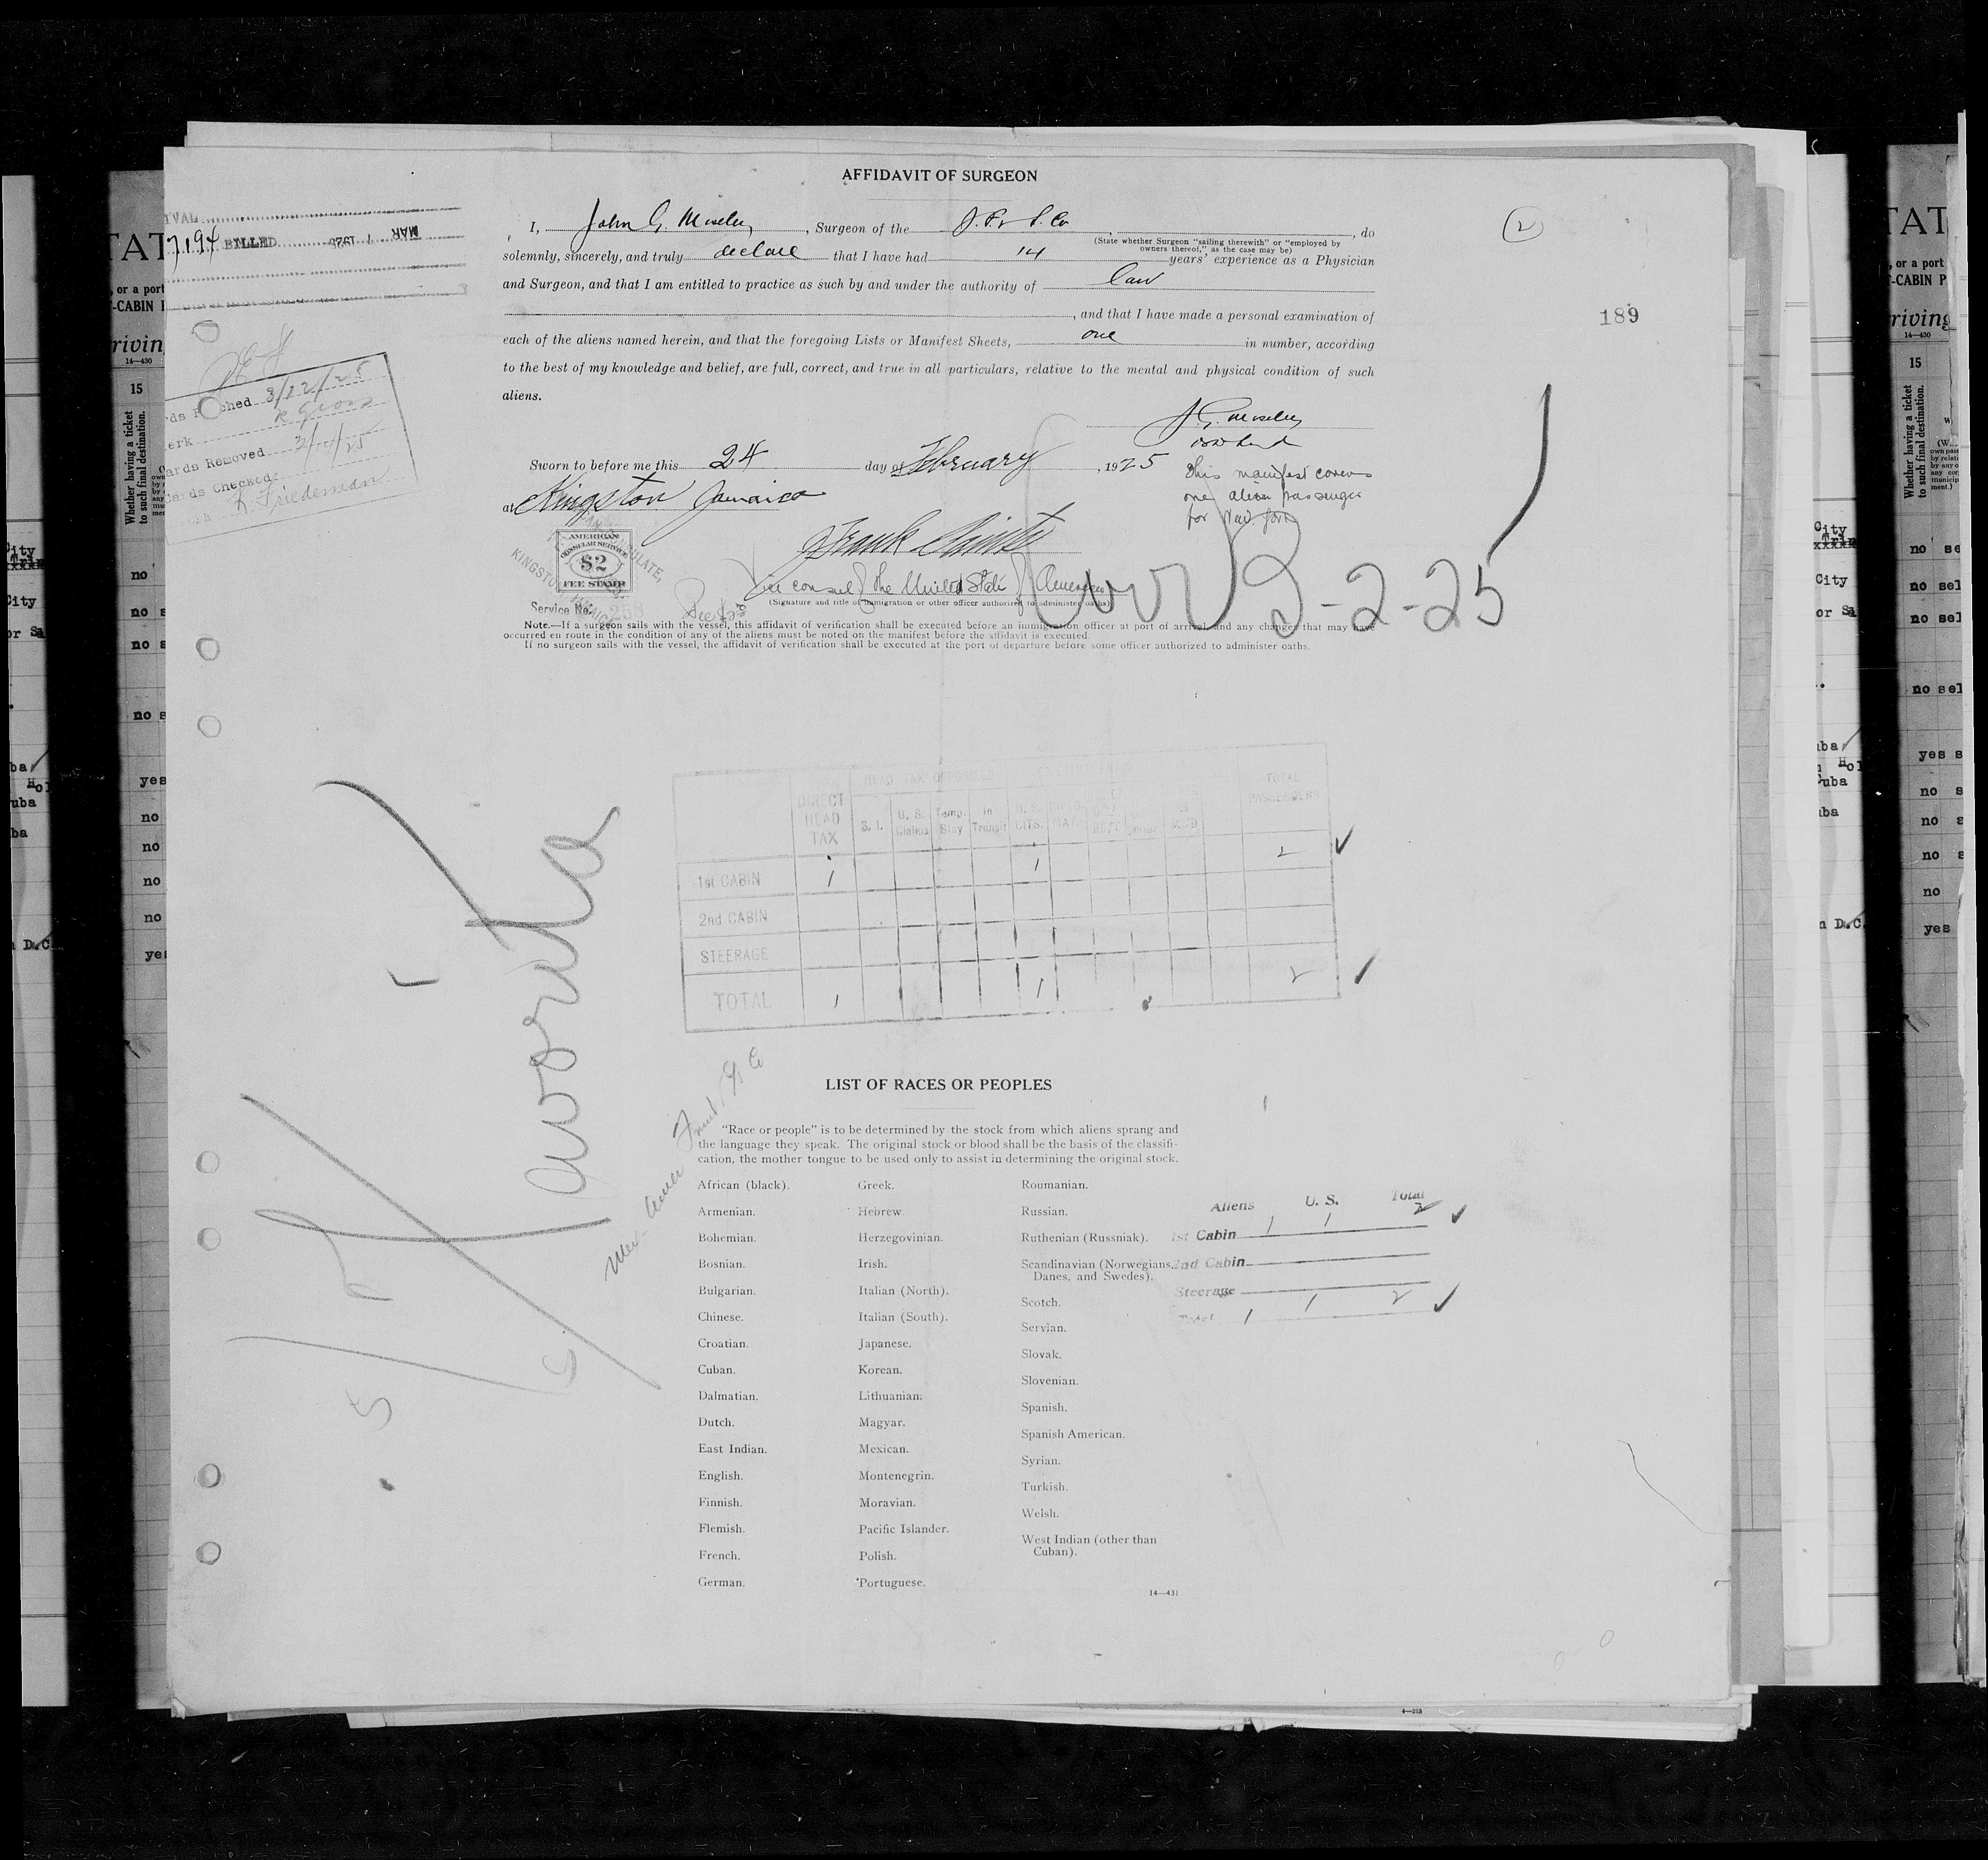 AFFIDAVIT OF SURGEON
I, John G. Moseley, Surgeon of the J. P. & S. Co, do
(State whether Surgeon "sailing therewith" or "employed by
owners thereof," as the case may be)
solemnly, sincerely, and truly declare that I have had 14 years' experience as a Physician
and Surgeon, and that I am entitled to practice as such by and under the authority of law
, and that I have made a personal examination of
each of the aliens named herein, and that the foregoing Lists or Manifest Sheets, one in number, according
to the best of my knowledge and belief, are full, correct, and true in all particulars, relative to the mental and physical condition of such
aliens.
J. G. Moseley
Sworn to before me this 24 day of February, 1925
at Kingston Jamaica
This manifest covers
one alien passenger
for New York
AMERICAN
CONSULAR SERVICE
$2
FEE STAMP
KINGSTON, JAMAICA
Vice consul of the United States of America
(Signature and title of immigration or other officer authorized to administer oaths)
Service No. 258
Note.—If a surgeon sails with the vessel, this affidavit of verification shall be executed before an immigration officer at port of arrival, and any changes that may have
occurred en route in the condition of any of the aliens must be noted on the manifest before the affidavit is executed.
If no surgeon sails with the vessel, the affidavit of verification shall be executed at the port of departure before some officer authorized to administer oaths.
arr 3-2-25
2
189
7194 BILLED MAR 7 1925
3/12/25
Cards Removed
Cards Checked
K Friedeman
HEAD TAX DEPOSITED
DIRECT HEAD TAX
S. I.
U. S. Claims
Temp. Stay
In Transit
U. S. CITS.
TOTAL PASSENGERS
1st CABIN 1 1 2
2nd CABIN
STEERAGE
TOTAL 1 1 2
Aworta
LIST OF RACES OR PEOPLES
"Race or people" is to be determined by the stock from which aliens sprang and
the language they speak. The original stock or blood shall be the basis of the classifi-
cation, the mother tongue to be used only to assist in determining the original stock.
African (black).
Armenian.
Bohemian.
Bosnian.
Bulgarian.
Chinese.
Croatian.
Cuban.
Dalmatian.
Dutch.
East Indian.
English.
Finnish.
Flemish.
French.
German.
Greek.
Hebrew.
Herzegovinian.
Irish.
Italian (North).
Italian (South).
Japanese.
Korean.
Lithuanian.
Magyar.
Mexican.
Montenegrin.
Moravian.
Pacific Islander.
Polish.
Portuguese.
Roumanian.
Russian.
Ruthenian (Russniak).
Scandinavian (Norwegians,
Danes, and Swedes).
Scotch.
Servian.
Slovak.
Slovenian.
Spanish.
Spanish American.
Syrian.
Turkish.
Welsh.
West Indian (other than
Cuban).
14—431
Aliens U. S. Total
1st Cabin 1 1 2
2nd Cabin
Steerage
Total 1 1 2